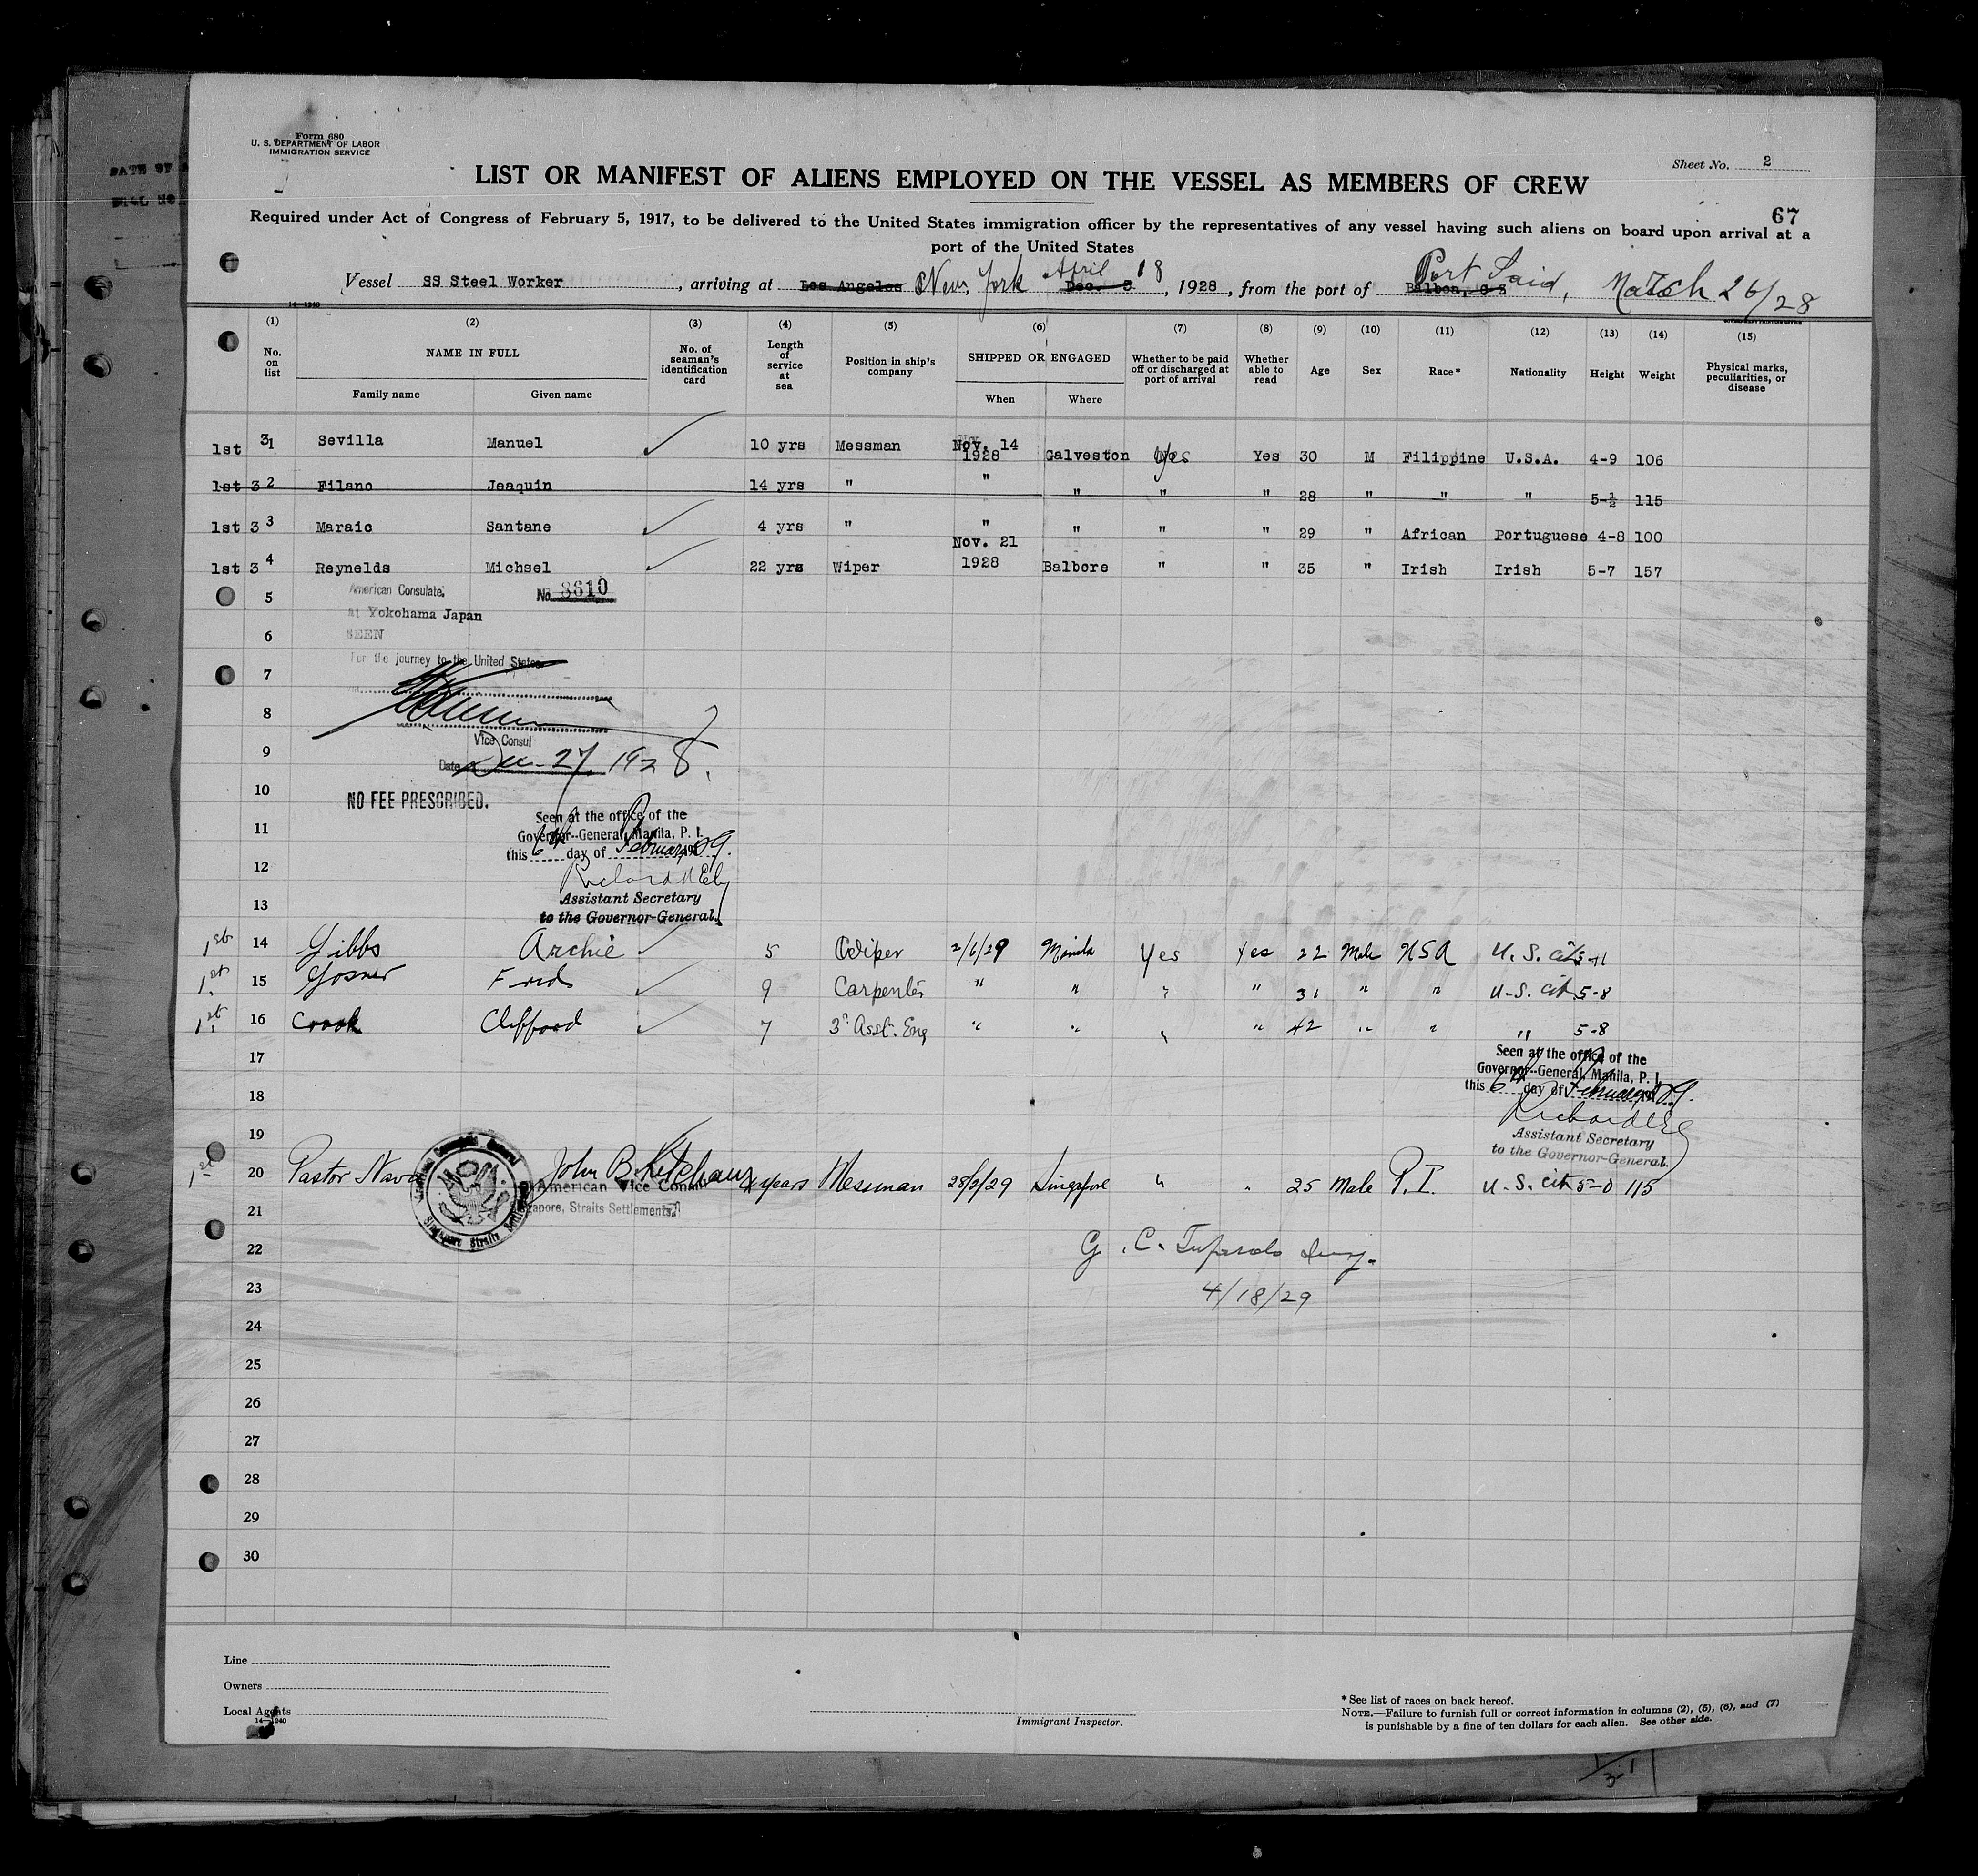 DATE OF
Form 680
U. S. DEPARTMENT OF LABOR
IMMIGRATION SERVICE
Sheet No. 2
LIST OR MANIFEST OF ALIENS EMPLOYED ON THE VESSEL AS MEMBERS OF CREW
67
Required under Act of Congress of February 5, 1917, to be delivered to the United States immigration officer by the representatives of any vessel having such aliens on board upon arrival at a
port of the United States
Vessel SS Steel Worker, arriving at Los Angeles New York Dec. 8 April 18, 1928, from the port of Balboa, C Z Port Said, March 26/28
14-1240
GOVERNMENT PRINTING OFFICE
(1) (2) (3) (4) (5) (6) (7) (8) (9) (10) (11) (12) (13) (14) (15)
No. on list NAME IN FULL No. of seaman's identification card Length of service at sea Position in ship's company SHIPPED OR ENGAGED Whether to be paid off or discharged at port of arrival Whether able to read Age Sex Race* Nationality Height Weight Physical marks, peculiarities, or disease
Family name Given name When Where
1st 31 Sevilla Manuel 10 yrs Messman Nov. 14 1928 Galveston Yes Yes 30 M Filippine U.S.A. 4-9 106
1st 3 2 Filano Joaquin 14 yrs " " " " " 28 " " " 5-½ 115
1st 3 3 Maraio Santane 4 yrs " " " " " 29 " African Portuguese 4-8 100
1st 3 4 Reynolds Michael 22 yrs Wiper Nov. 21 1928 Balbore " " 35 " Irish Irish 5-7 157
5 American Consulate, No. 8610
At Yokohama Japan
6 SEEN
For the journey to the United States
7
8
Vice Consul
9 Date Dec. 27, 1928.
10 NO FEE PRESCRIBED.
Seen at the office of the
11 Governor-General, Manila, P. I.
this 6th day of February 1929.
12
13 Assistant Secretary
to the Governor-General.
1st 14 Gibbs Archie 5 Wiper 2/6/29 Manila Yes Yes 22 Male USA U. S. cit 5-11
1st 15 Fred 9 Carpenter " " " " 31 " " U.S. cit 5-8
1st 16 Crook Clifford 7 3rd Asst. Eng " " " " 42 " " " 5-8
17 Seen at the office of the
Governor-General, Manila, P. I.
18 this 6th day of February 1929.
19 Assistant Secretary
to the Governor-General.
1st 20 Pastor Nava John B. Ketcham 4 years Messman 28/2/29 Singapore " " 25 Male P.I. U.S. cit 5-0 115
American Vice Consul
21 Singapore, Straits Settlements
22 G. C.
23 4/18/29
24
25
26
27
28
29
30
Line
Owners
Local Agents
14-1240
Immigrant Inspector.
*See list of races on back hereof.
NOTE.—Failure to furnish full or correct information in columns (2), (5), (6), and (7)
is punishable by a fine of ten dollars for each alien. See other side.